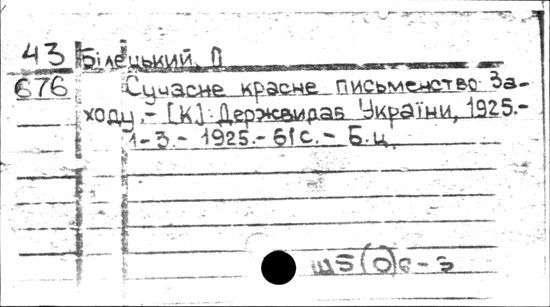 43 Білецький, О
676 Сучасне красне письменство За-
ходу.- [К]: Держвидав України, 1925.-
1-3.- 1925.- 61с.- Б.ц.
Ш5(0)6-3